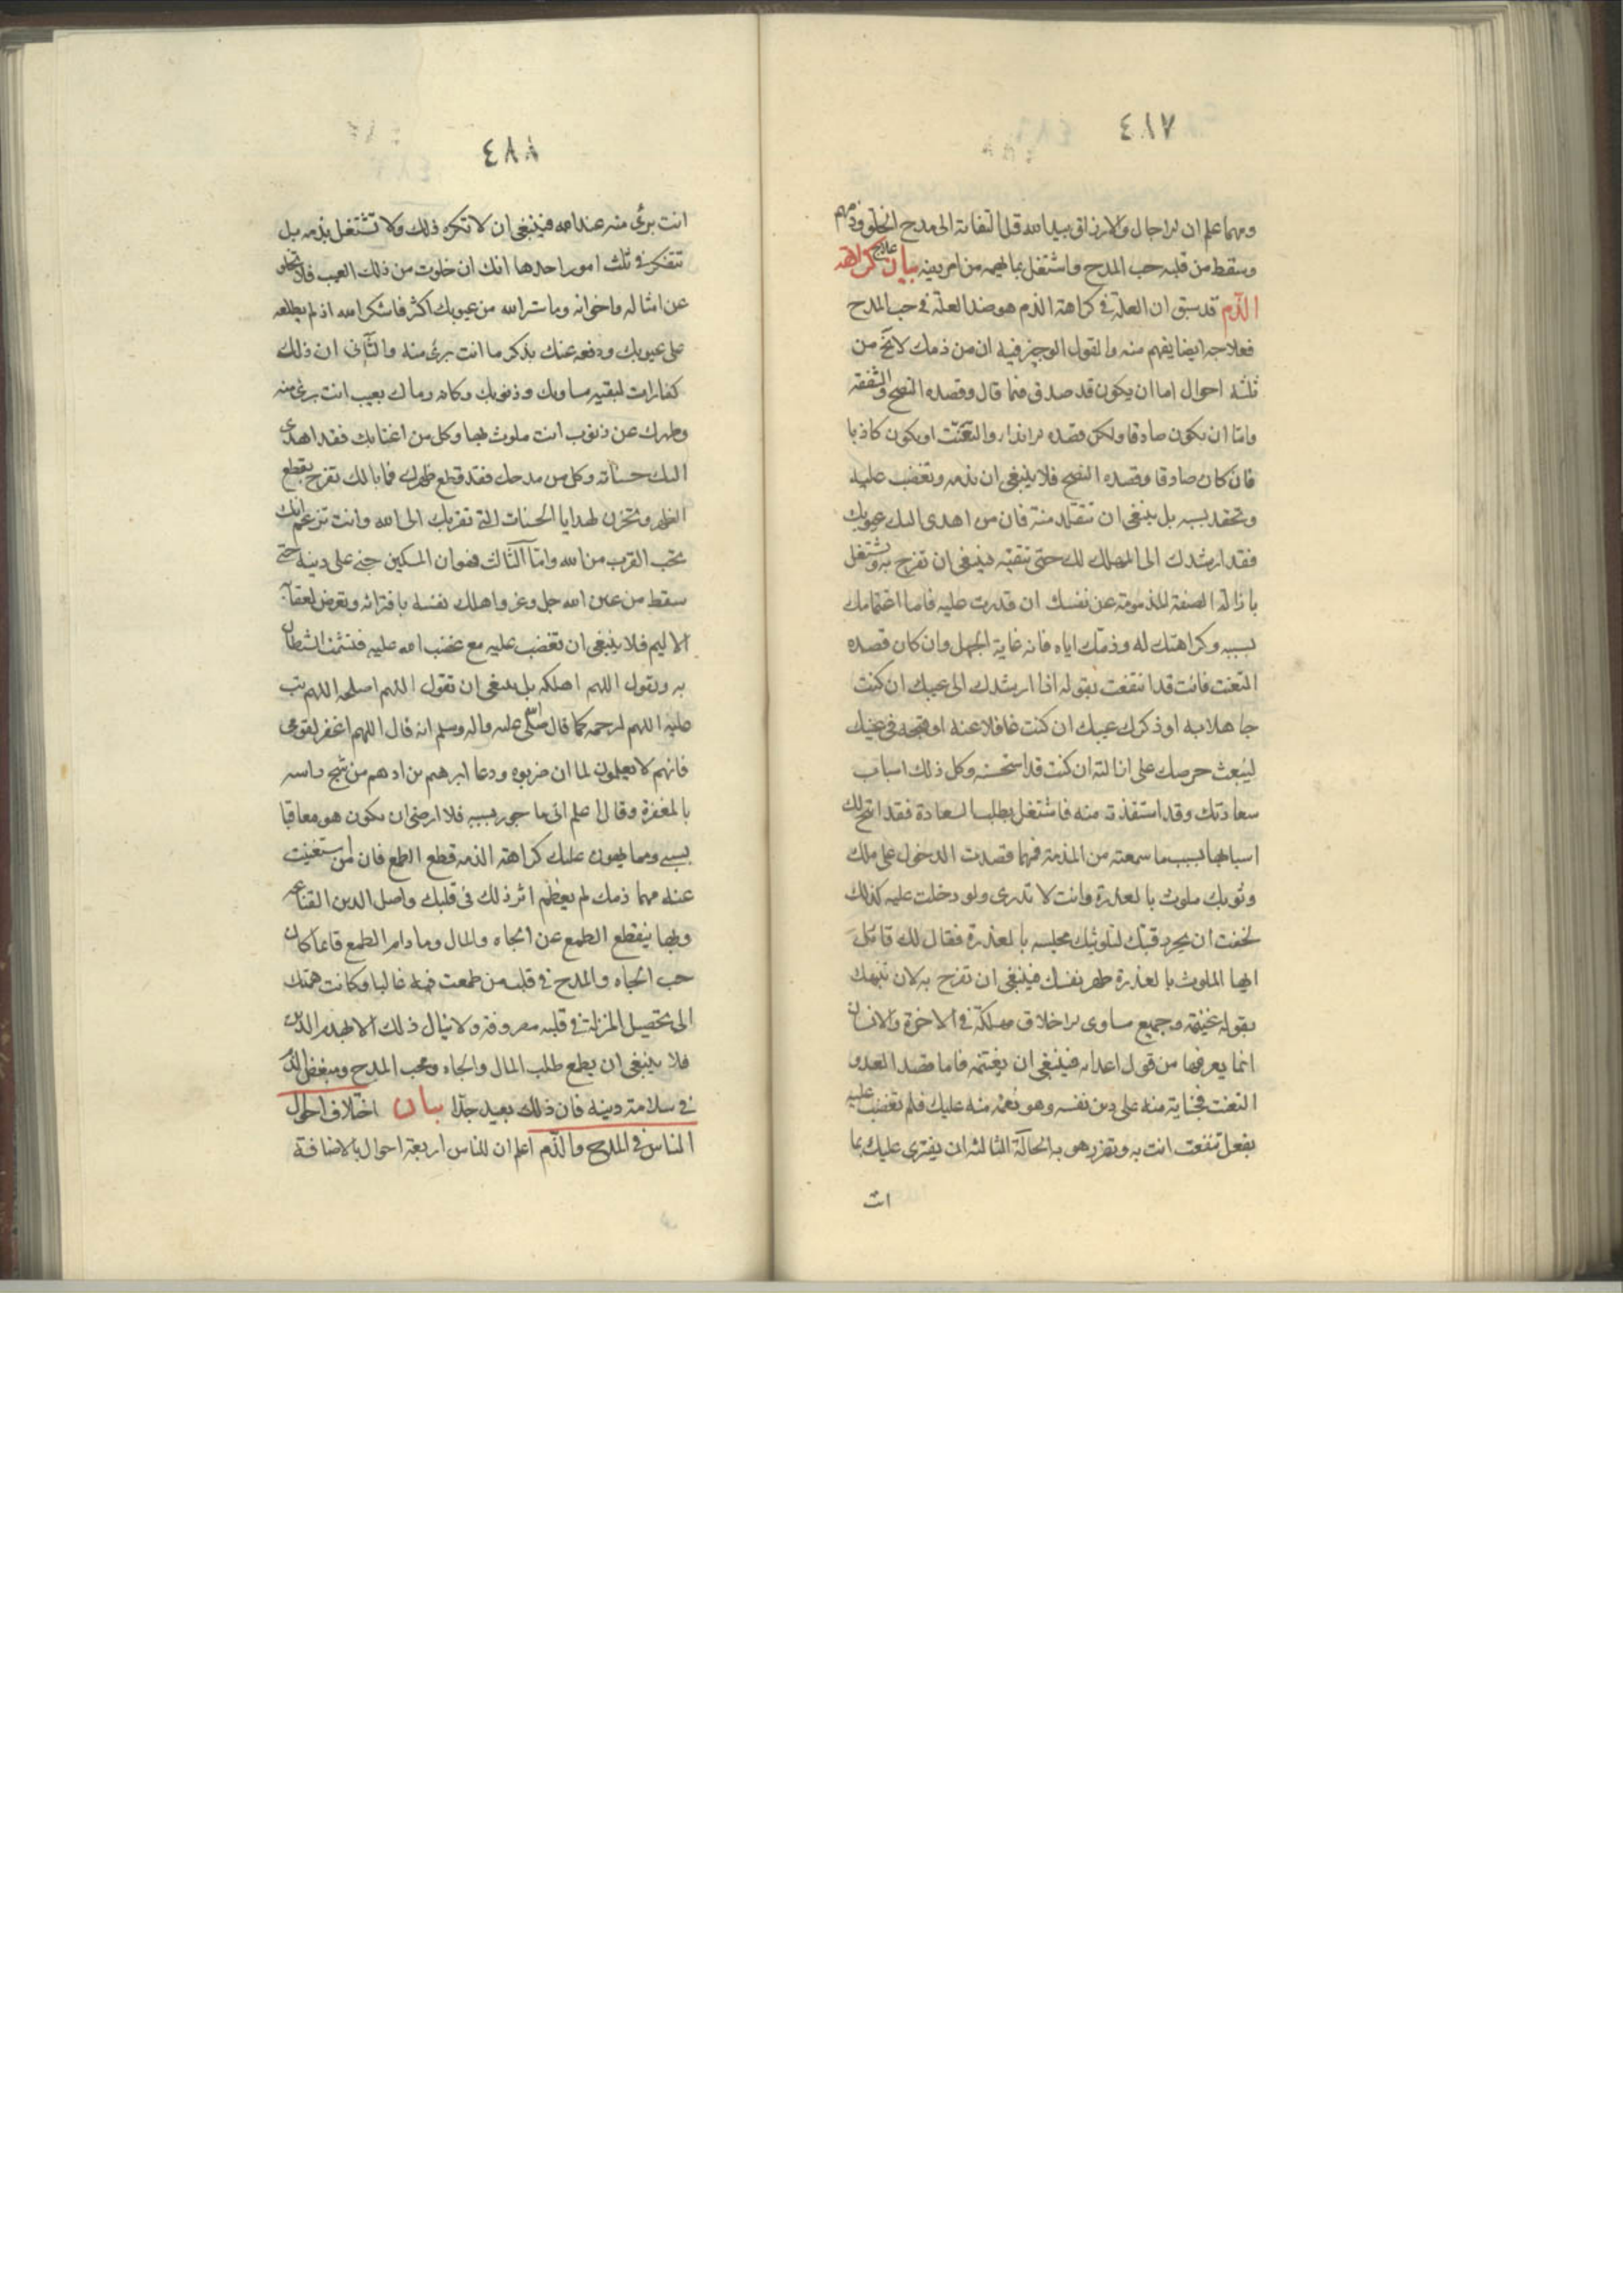 ٤٨٧
ومهما علم ان الاجال والارزاق بيد الله قل التفاته الى مدح الخلق وذمهم
وسقط من قلبه حب المدح واشتغل بما يهمه من امر دينه بيان علاج كراهة
الذم قد سبق ان العلة في كراهة الذم هو ضد العلة في حب المدح
فعلاجه ايضا يفهم منه والقول الوجيز فيه ان من ذمك لا يخ من
ثلثة احوال اما ان يكون قد صدق فيما قال وقصده النصح والشفقة
واما ان يكون صادقا ولكن قصده الايذاء والتعنت او يكون كاذبا
فان كان صادقا وقصده النصح فلا ينبغي ان تذمه وتغضب عليه
وتحقد بسببه بل ينبغي ان تتقلد منة فان من اهدى اليك عيوبك
فقد ارشدك الى المهلك لك حتى تتقيه فينبغي ان تفرح به وتشتغل
بازالة الصفة المذمومة عن نفسك ان قدرت عليه فاما اغتمامك
بسببه وكراهتك له وذمك اياه فانه غاية الجهل وان كان قصده
التعنت فانت قد انتفعت بقوله اذا ارشدك الى عيبك ان كنت
جاهلا به او ذكرك عيبك ان كنت غافلا عنه او قبحه في عينك
ليبعث حرصك على ازالته ان كنت قد استحسنه وكل ذلك اسباب
سعادتك وقد استفدته منه فاشتغل بطلب السعادة فقد اتيح لك
اسبابها بسبب ما سمعته من المذمة فمهما قصدت الدخول على ملك
وثوبك ملوث بالعذرة وانت لا تدرى ولو دخلت عليه كذلك
لخفت ان يحز رقبتك لتلويثك مجلسه بالعذرة فقال لك قائل
ايها الملوث بالعذرة طهر نفسك فينبغي ان تفرح به لان تنبهك
بقوله غنيمة وجميع مساوى الاخلاق مهلكة في الاخرة والانسان
انما يعرفها من قول اعدائه فينبغي ان يغتنمه فاما قصد العدو
التعنت فجناية منه على دين نفسه وهو نعمة منه عليك فلم تغضب عليه
بفعل تنفعت انت به وتضرر هو به الحالة الثالثة ان يفترى عليك بما
انت
٤٨٨
انت برئ منه عند الله فينبغي ان لا تكره ذلك ولا تشتغل بذمه بل
تتفكر في ثلث امور احدها انك ان خلوت من ذلك العيب فلا تخلو
عن امثاله واخوانه وما ستر الله من عيوبك اكثر فاشكر الله اذ لم يطلعه
على عيوبك ودفعه عنك بذكر ما انت برئ منه والثانى ان ذلك
كفارات لبقية مساويك وذنوبك وكانه رماك بعيب انت برئ منه
وطهرك عن ذنوب انت ملوث بها وكل من اغتابك فقد اهدى
اليك حسناته وكل من مدحك فقد قطع ظهرك فما بالك تفرح بقطع
الظهر وتحزن لهدايا الحسنات التى تقربك الى الله وانت تزعم انك
تحب القرب من الله واما الثالث فهو ان المسكين جنى على دينه حتى
سقط من عين الله جل وعز واهلك نفسه بافترائه وتعرض لعقابه
الاليم فلا ينبغي ان تغضب عليه مع غضب الله عليه فتشمت الشيطان
به وتقول اللهم اهلكه بل ينبغي ان تقول اللهم اصلحه اللهم تب
عليه اللهم ارحمه كما قال صلى الله عليه واله وسلم انه قال اللهم اغفر لقومى
فانهم لا يعلمون لما ان ضربوه ودعا ابرهيم بن ادهم من شج راسه
بالمغفرة وقال اعلم انى ماجور بسببه فلا ارضى ان يكون هو معاقبا
بسببى ومما يهون عليك كراهة الذمه قطع الطمع فان من استغنيت
عنه مهما ذمك لم يعظم اثر ذلك في قلبك واصل الدين القناعة
وبها ينقطع الطمع عن الجاه والمال وما دام الطمع قائما كان
حب الجاه والمدح في قلب من طمعت فيه غالبا وكانت همتك
الى تحصيل المنزلة في قلبه مصروفة ولا ينال ذلك الا بهدم الدين
فلا ينبغي ان يطمع طلب المال والجاه ومحب المدح ومبغض الذم
في سلامة دينه فان ذلك بعيد جدا بيان اختلاف احوال
الناس في المدح والذم اعلم ان للناس اربعة احوال بالاضافة